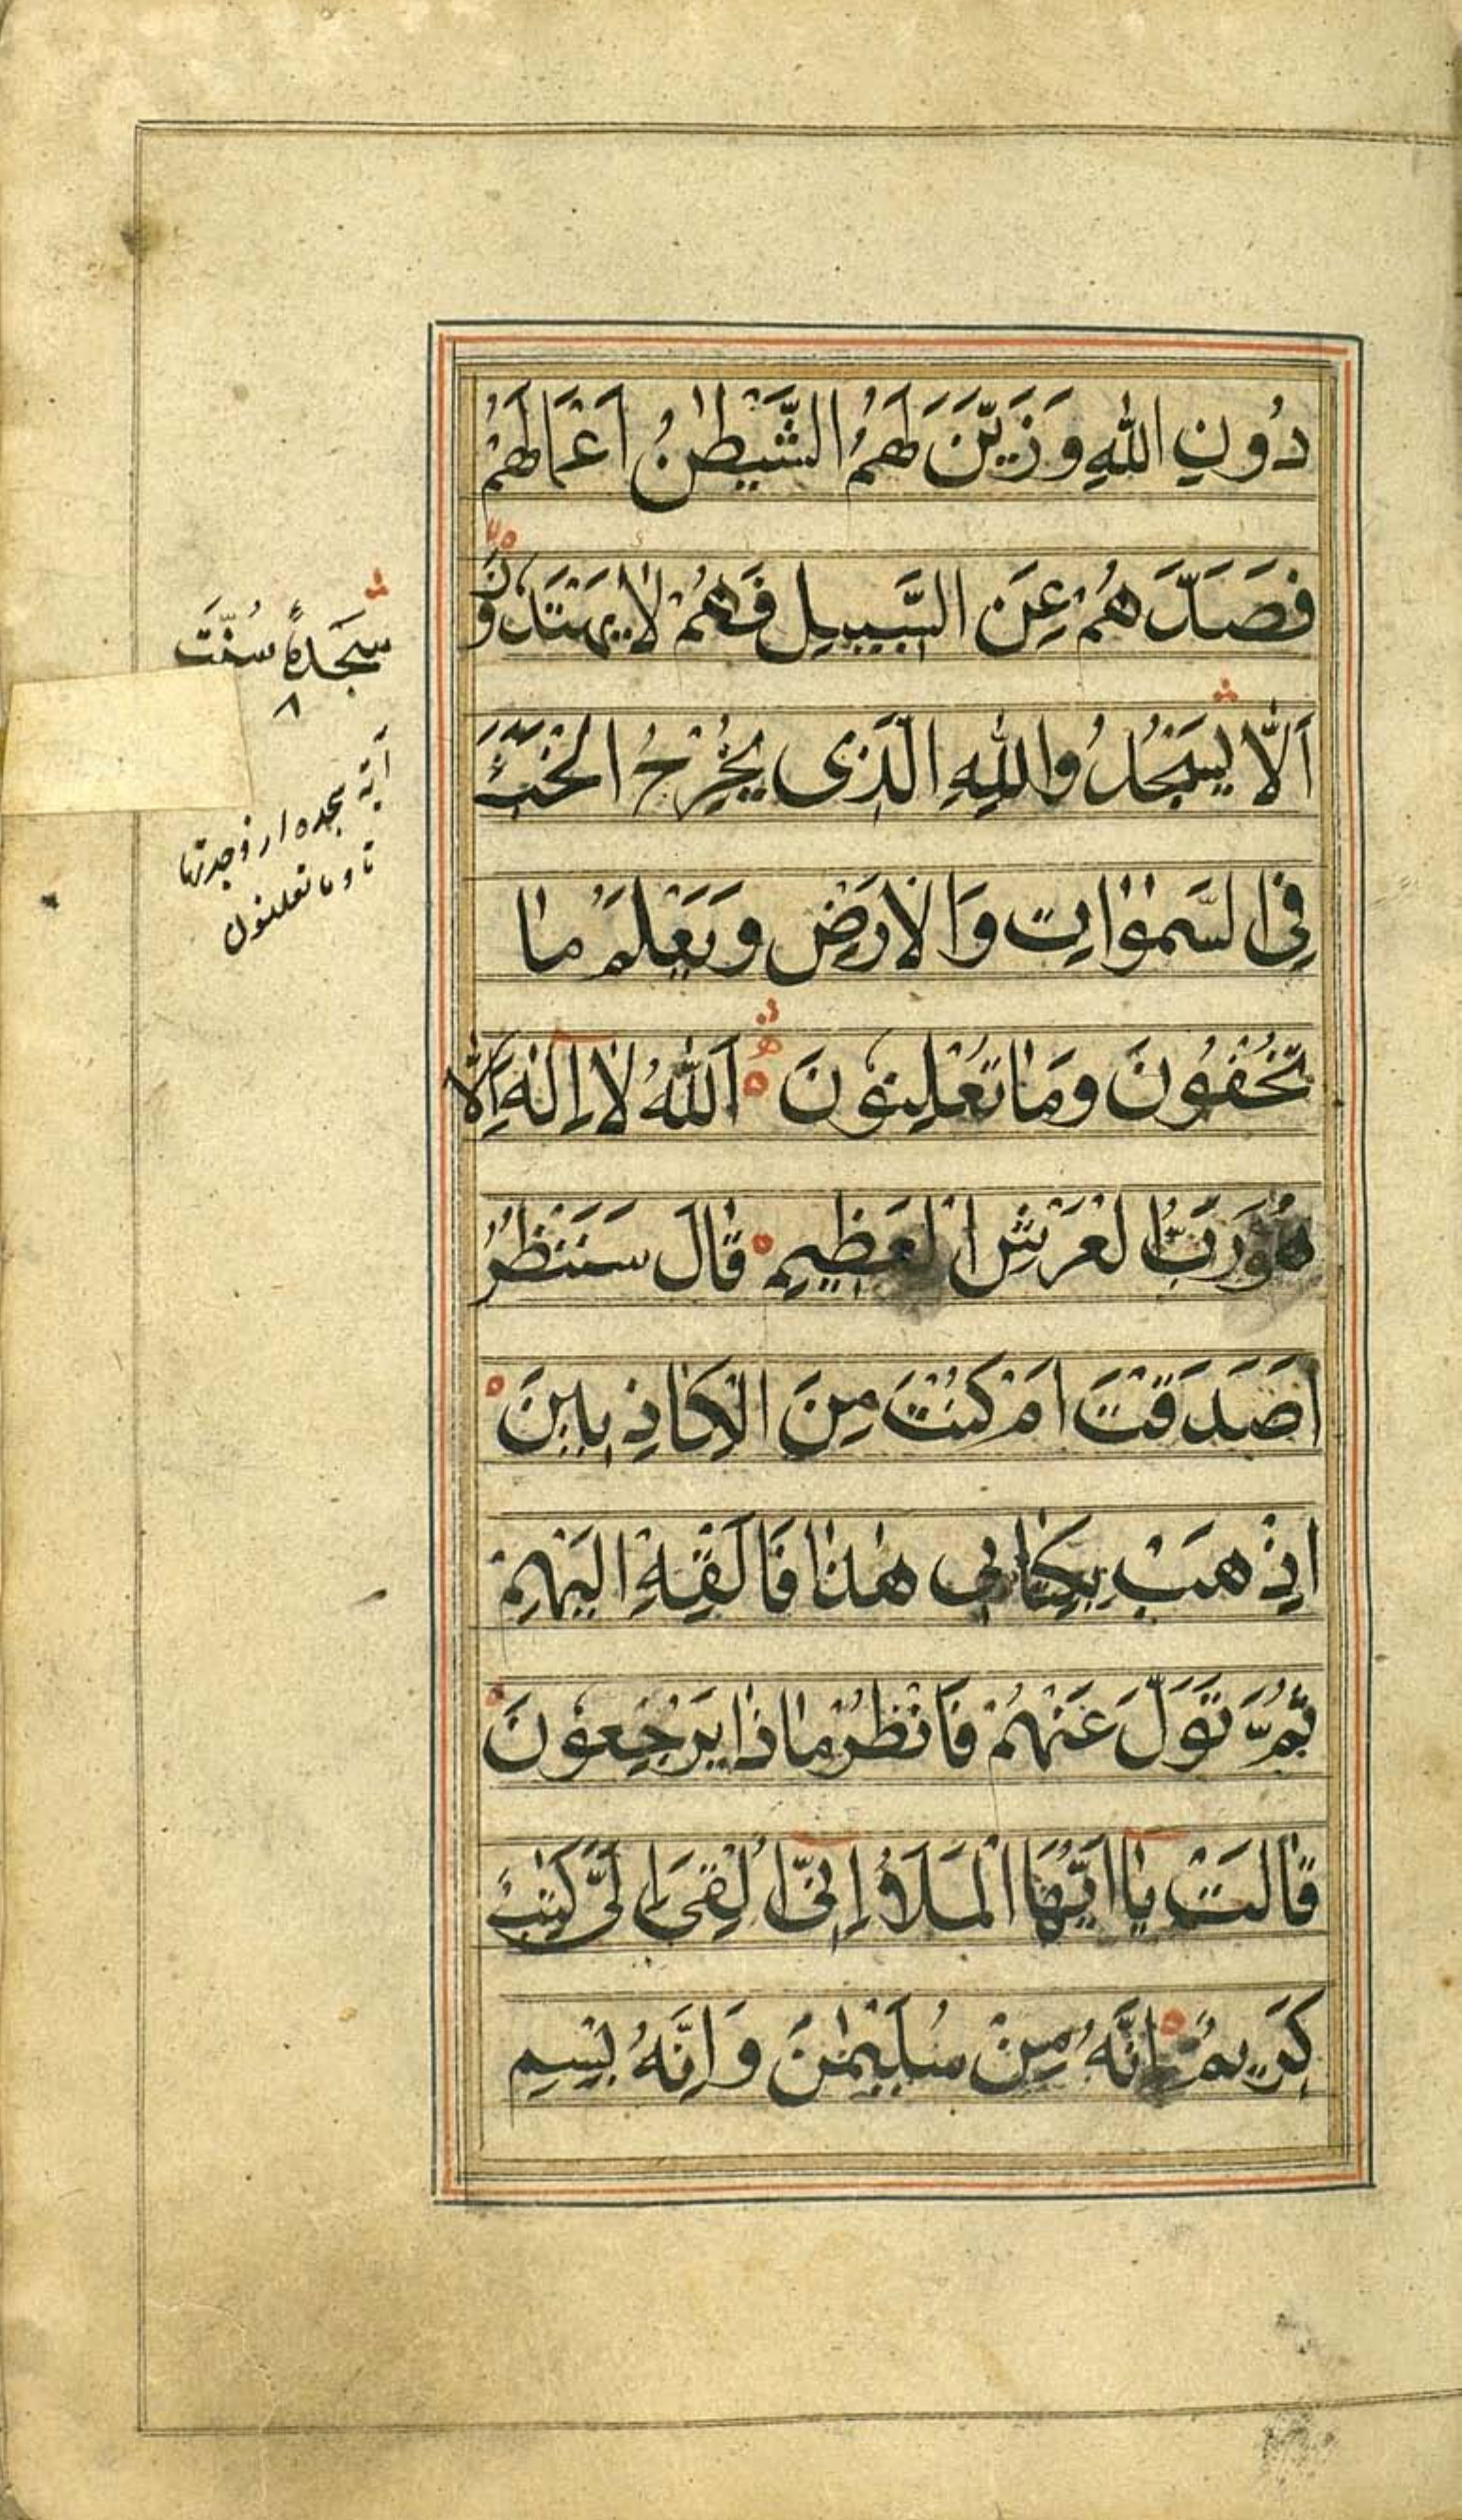 دُونِ اللهِ وَزَيَّنَ لَهُمُ الشَّيْطٰنُ اَعْمَالَهُمْ
فَصَدَّهُمْ عَنِ السَّبِيلِ فَهُمْ لَا يَهْتَدُونَ
اَلَّا يَسْجُدُوا لِلّٰهِ الَّذِى يُخْرِجُ الْخَبْءَ
فِى السَّمٰوَاتِ وَالْاَرْضِ وَيَعْلَمُ مَا
تُخْفُونَ وَمَا تُعْلِنُونَ اَللهُ لَا اِلٰهَ اِلَّا
هُوَ رَبُّ الْعَرْشِ الْعَظِيمِ قَالَ سَنَنْظُرُ
اَصَدَقْتَ اَمْ كُنْتَ مِنَ الْكَاذِبِينَ
اِذْهَبْ بِكِتَابِى هٰذَا فَاَلْقِهْ اِلَيْهِمْ
ثُمَّ تَوَلَّ عَنْهُمْ فَانْظُرْ مَاذَا يَرْجِعُونَ
قَالَتْ يَا اَيُّهَا الْمَلَؤُا اِنِّى اُلْقِىَ اِلَىَّ كِتٰبٌ
كَرِيمٌ اِنَّهُ مِنْ سُلَيْمٰنَ وَاِنَّهُ بِسْمِ
سَجَدَةً سُنَّتَ
٨
آية سجده از وجدتها
تا و ما تعلنون